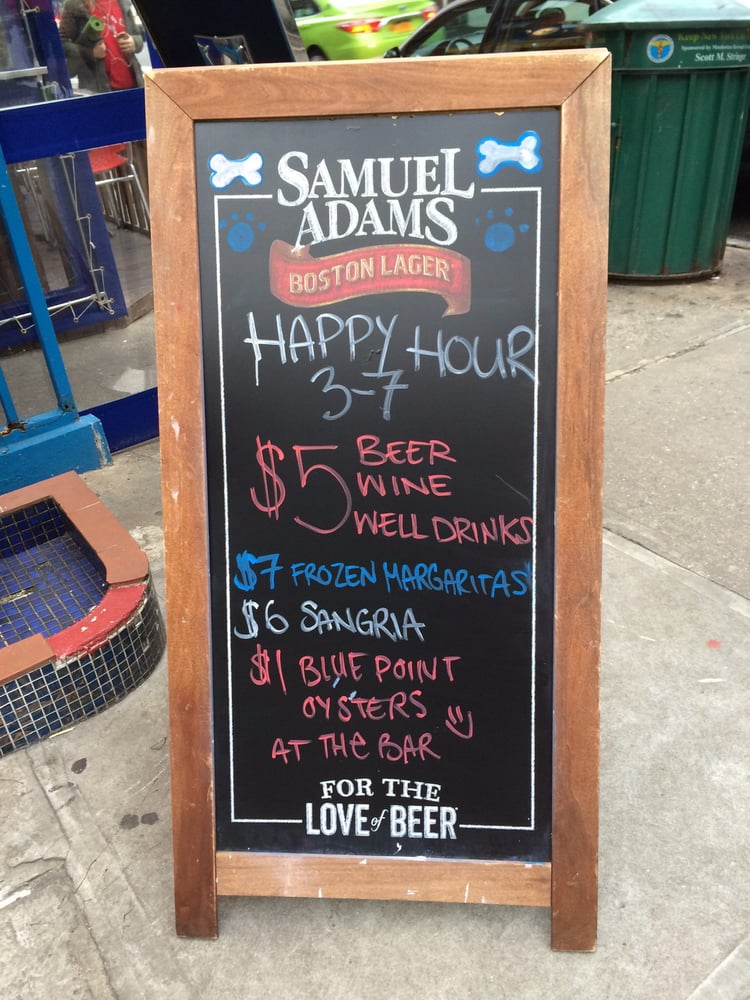 SAMUEL
ADAMS
BOSTON LAGER
HAPPY HOUR
3-7
$5 BEER
WINE
WELL DRINKS
$7 FROZEN MARGARITAS
$6 SANGRIA
$1 BLUE POINT
OYSTERS
AT THE BAR
FOR THE
LOVE of BEER
Keep New
Scott M. Stringer